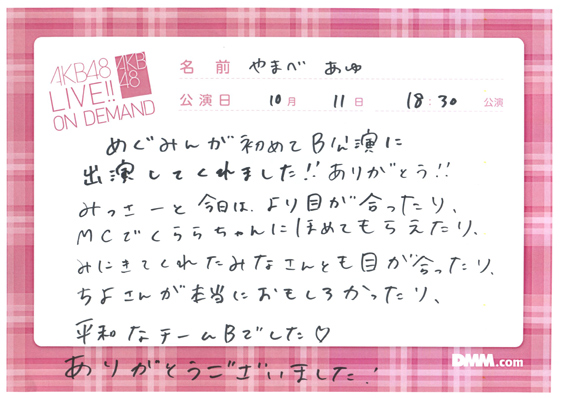 AKB48
LIVE!!
ON DEMAND
AKB
48
名前 やまべ あゆ
公演日 10月 11日 18:30 公演
めぐみんが初めてB公演に
出演してくれました!!ありがとう!!
みっさーと今日は、より目が合ったり、
MCでくららちゃんにほめてもらえたり、
みにきてくれたみなさんとも目が合ったり、
ちよさんが本当におもしろかったり、
平和なチームBでした♡
ありがとうございました!
DMM.com